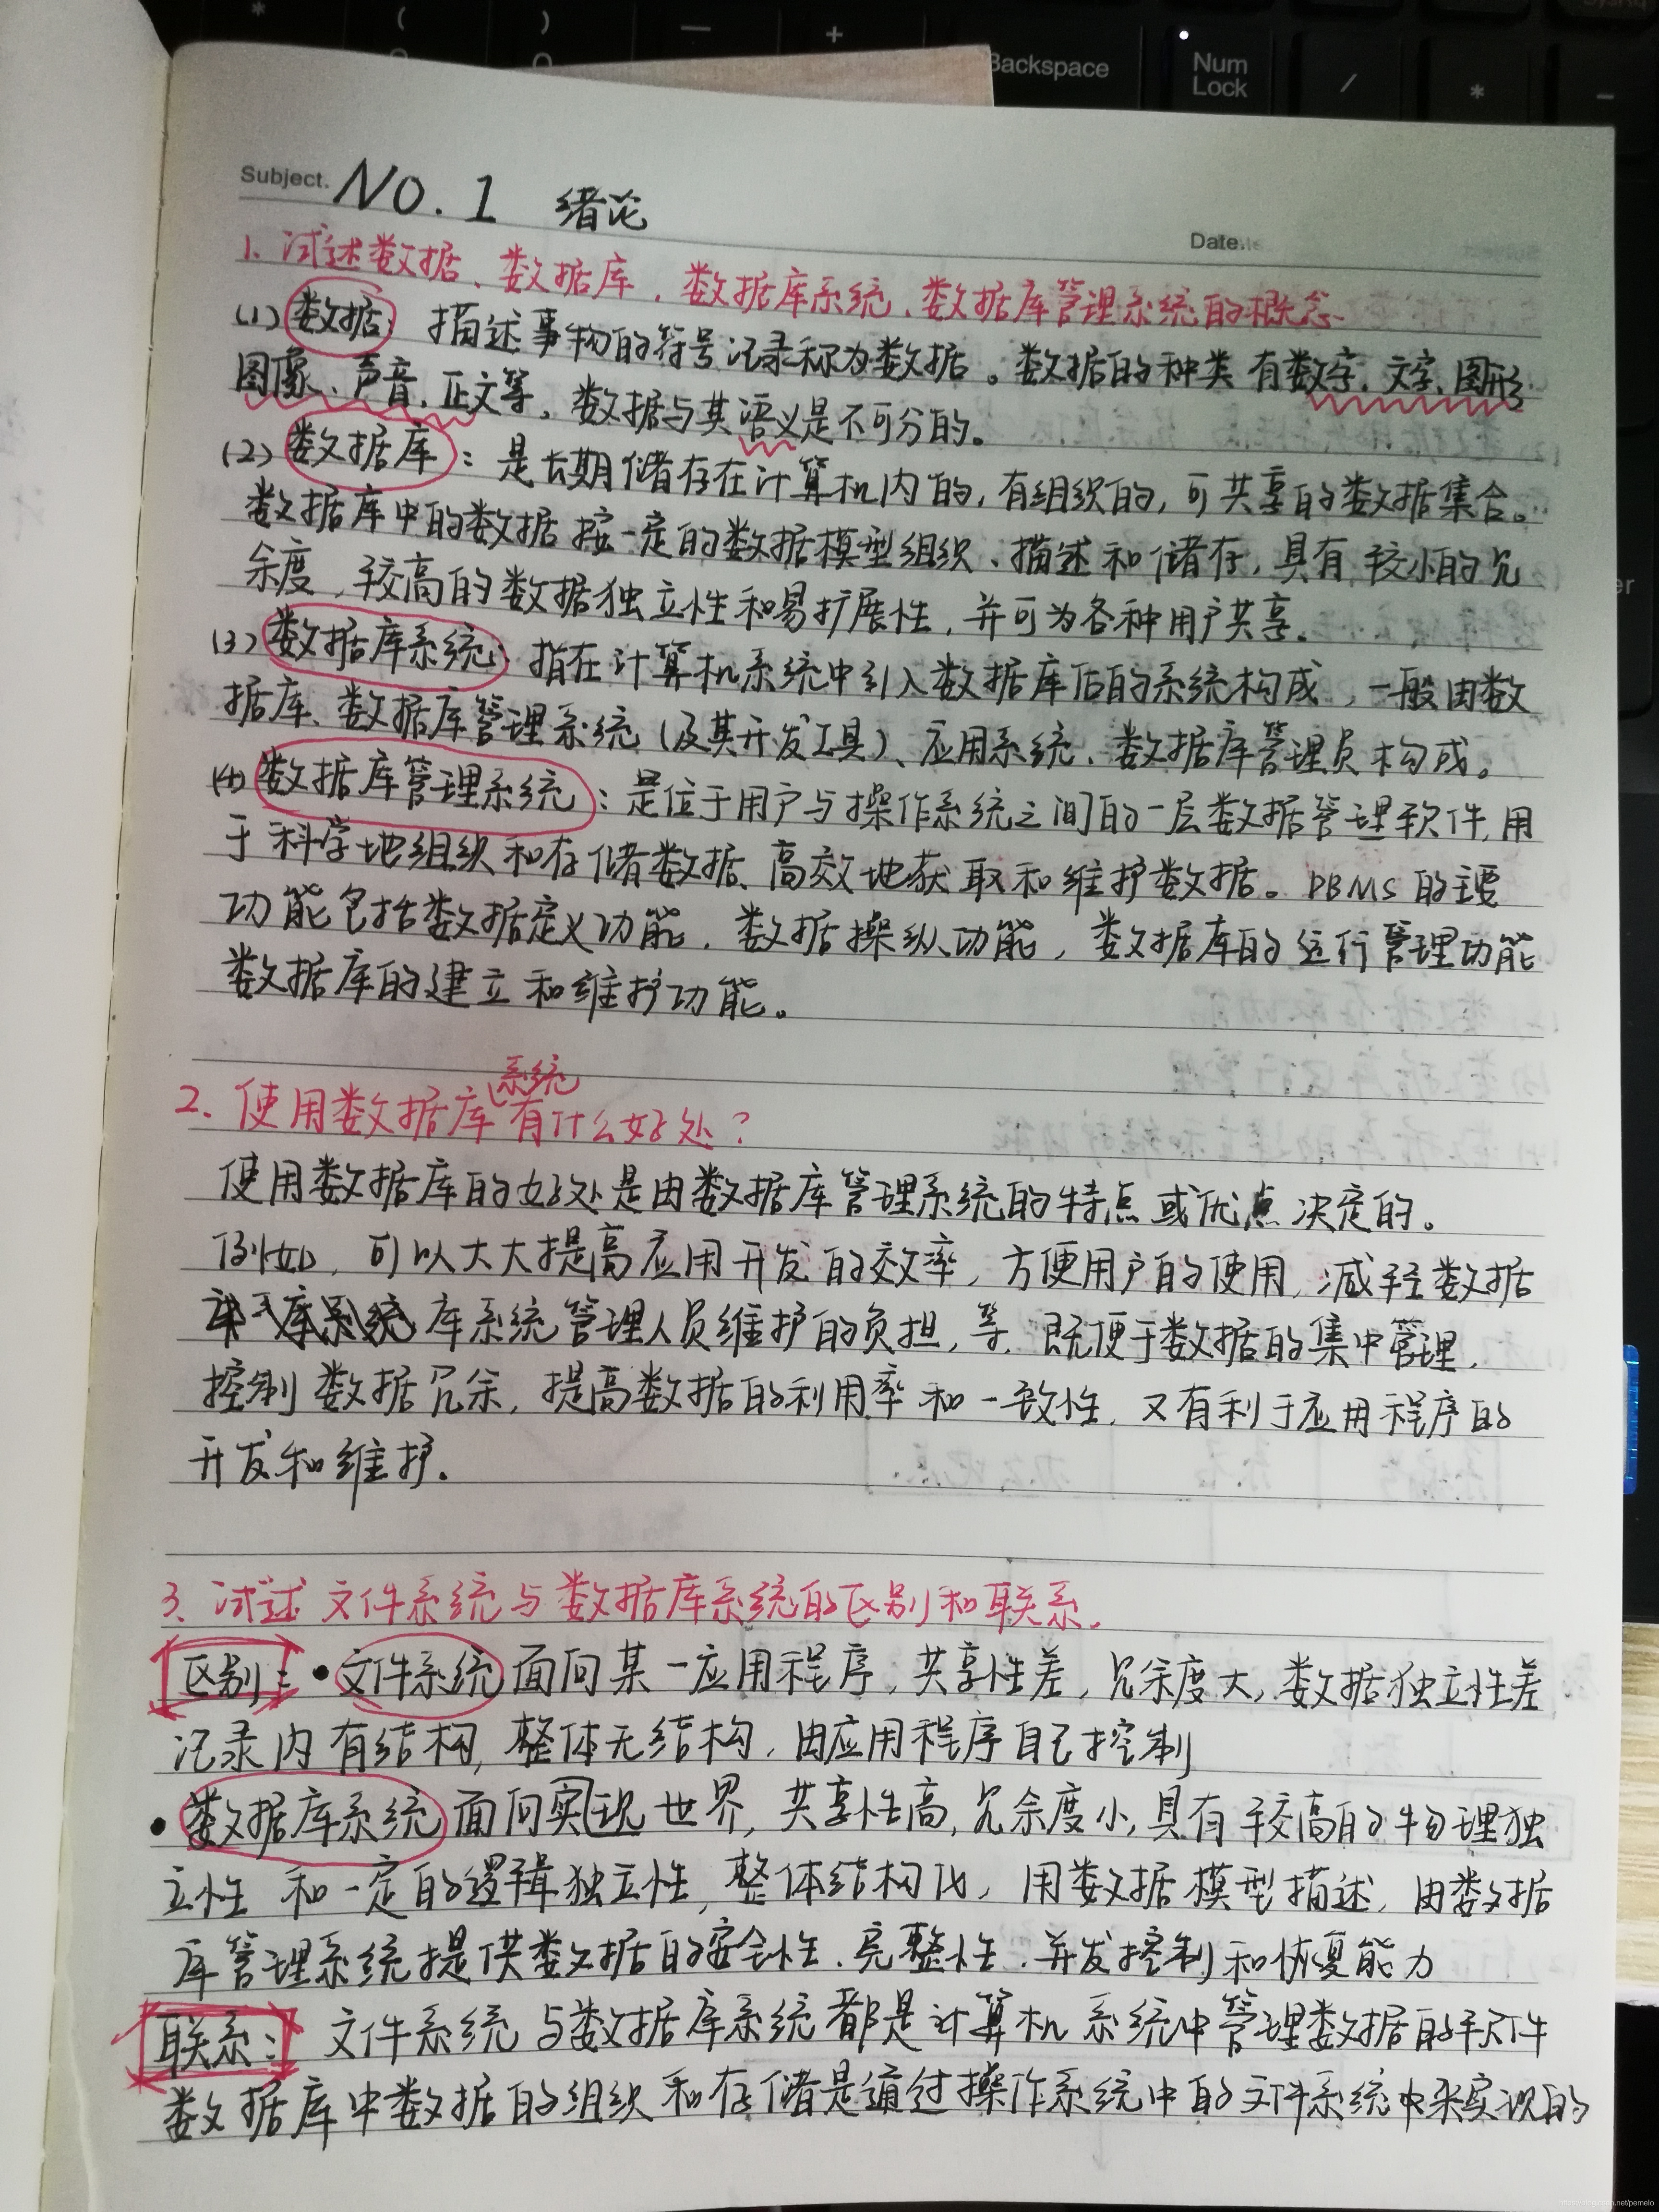 Backspace
Num
Lock
Subject. NO.1 绪论
Date.
1. 试述数据、数据库、数据库系统、数据库管理系统的概念.
(1) 数据: 描述事物的符号记录称为数据。数据的种类有数字、文字、图形
图像、声音、正文等。数据与其语义是不可分的。
(2) 数据库: 是长期储存在计算机内的,有组织的,可共享的数据集合。
数据库中的数据按一定的数据模型组织、描述和储存,具有较小的冗
余度,较高的数据独立性和易扩展性,并可为各种用户共享.
(3) 数据库系统: 指在计算机系统中引入数据库后的系统构成,一般由数
据库、数据库管理系统(及其开发工具)、应用系统、数据库管理员构成。
(4) 数据库管理系统: 是位于用户与操作系统之间的一层数据管理软件,用
于科学地组织和存储数据、高效地获取和维护数据。DBMS的主要
功能包括数据定义功能、数据操纵功能,数据库的运行管理功能
数据库的建立和维护功能。
2. 使用数据库系统有什么好处?
使用数据库的好处是由数据库管理系统的特点或优点决定的。
例如,可以大大提高应用开发的效率,方便用户的使用,减轻数据
库系统管理人员维护的负担,等.既便于数据的集中管理,
控制数据冗余,提高数据的利用率和一致性,又有利于应用程序的
开发和维护.
3. 试述文件系统与数据库系统的区别和联系.
区别: •文件系统面向某一应用程序,共享性差,冗余度大,数据独立性差
记录内有结构,整体无结构,由应用程序自己控制
•数据库系统面向现世界,共享性高,冗余度小,具有较高的物理独
立性和一定的逻辑独立性,整体结构化,用数据模型描述,由数据
库管理系统提供数据的安全性.完整性.并发控制和恢复能力
联系: 文件系统与数据库系统都是计算机系统中管理数据的软件
数据库中数据的组织和存储是通过操作系统中的文件系统中来实现的